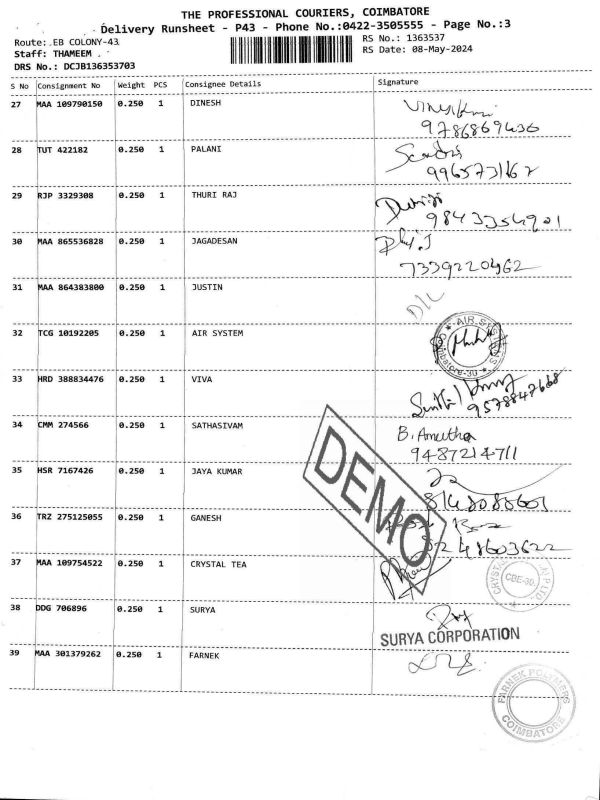 THE PROFESSIONAL COURIERS, COIMBATORE
Delivery Runsheet - P43 - Phone No.:0422-3505555 - Page No.:3
Route: EB COLONY-43 RS No.: 1363537
Staff: THAMEEM RS Date: 08-May-2024
DRS No.: DCJB136353703
S No Consignment No Weight PCS Consignee Details Signature
27 MAA 109790150 0.250 1 DINESH
9786869436
28 TUT 422182 0.250 1 PALANI
9965731162
29 RJP 3329308 0.250 1 THURI RAJ
9843354901
30 MAA 865536828 0.250 1 JAGADESAN
7339220462
31 MAA 864383800 0.250 1 JUSTIN
D/L
32 TCG 10192205 0.250 1 AIR SYSTEM
33 HRD 388834476 0.250 1 VIVA
9578847668
34 CMM 274566 0.250 1 SATHASIVAM
B. Amutha
9487214711
35 HSR 7167426 0.250 1 JAYA KUMAR
36 TRZ 275125055 0.250 1 GANESH
37 MAA 109754522 0.250 1 CRYSTAL TEA
CBE-30
38 DDG 706896 0.250 1 SURYA
SURYA CORPORATION
39 MAA 301379262 0.250 1 FARNEK
FARNEK POLYMERS
COIMBATORE
DEMO